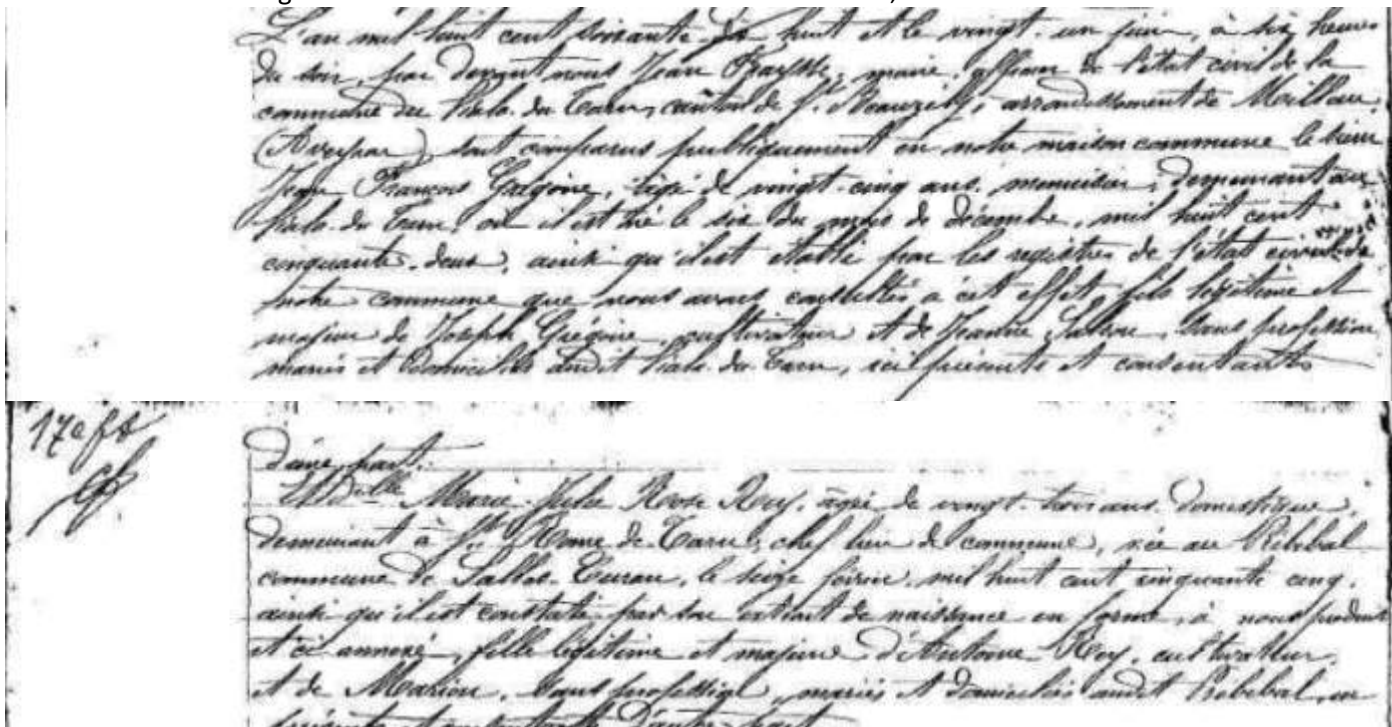 L'an mil huit cent soixante dix huit et le vingt-un juin, à six heures
du soir, par devant nous Jean Fraysse, maire, officier de l'état civil de la
commune du Viala-du-Tarn, canton de St Beauzély, arrondissement de Millau,
(Aveyron) sont comparus publiquement en notre maison commune le sieur
Jean François Grégoire, âgé de vingt-cinq ans, menuisier, demeurant au
Viala-du-Tarn, où il est né le six du mois de décembre, mil huit cent
cinquante-deux, ainsi qu'il est établi par les registres de l'état civil de
notre commune que nous avons consultés à cet effet, fils légitime et
majeur de Joseph Grégoire, cultivateur et de Jeanne, sans profession
mariés et domiciliés audit Viala-du-Tarn, ici présents et consentants
17e ft
d'une part.
Et Delle Marie-Julie Rose Rey, âgée de vingt-trois ans, domestique,
demeurant à St Rome-de-Tarn, chef lieu de commune, née au
commune de Salles-Curan, le seize février, mil huit cent cinquante cinq,
ainsi qu'il est constaté par son extrait de naissance en forme, à nous produit
et ci annexé, fille légitime et majeure d'Antoine Rey, cultivateur,
et de Marion, sans profession, mariés et domiciliés audit
présents et consentants d'autre part